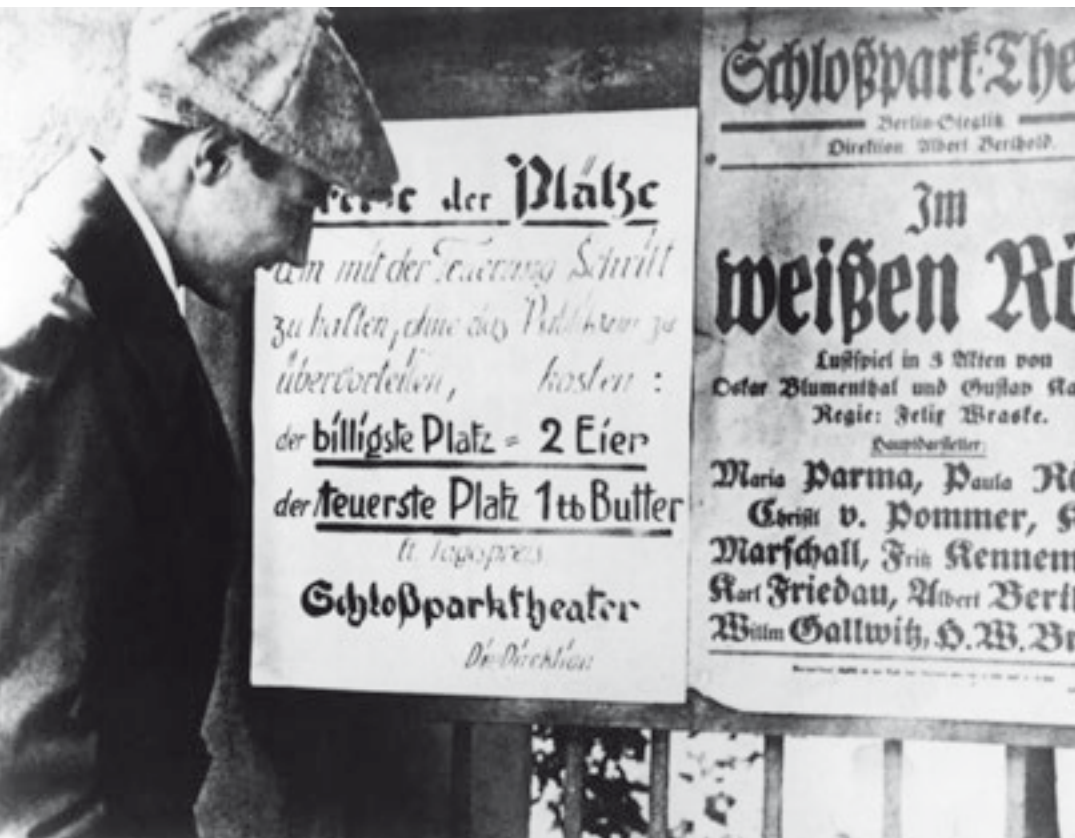 der Plätze
mit der Teuerung Schritt
zu halten, ohne das Publikum zu
übervorteilen, kosten:
der billigste Platz = 2 Eier
der teuerste Platz 1 ℔ Butter
lt. Tagespreis
Schloßparktheater
Die Direktion
Schloßpark-The
Berlin-Steglitz
Direktion Albert Berthold.
Im
weißen Rö
Lustspiel in 3 Akten von
Oskar Blumenthal und Gustav Ka
Regie: Felix Wraske.
Hauptdarsteller:
Maria Parma, Paula Rö
Christl v. Pommer, K
Marschall, Fritz Kennem
Karl Friedau, Albert Bert
Willm Gallwitz, H. W. Br